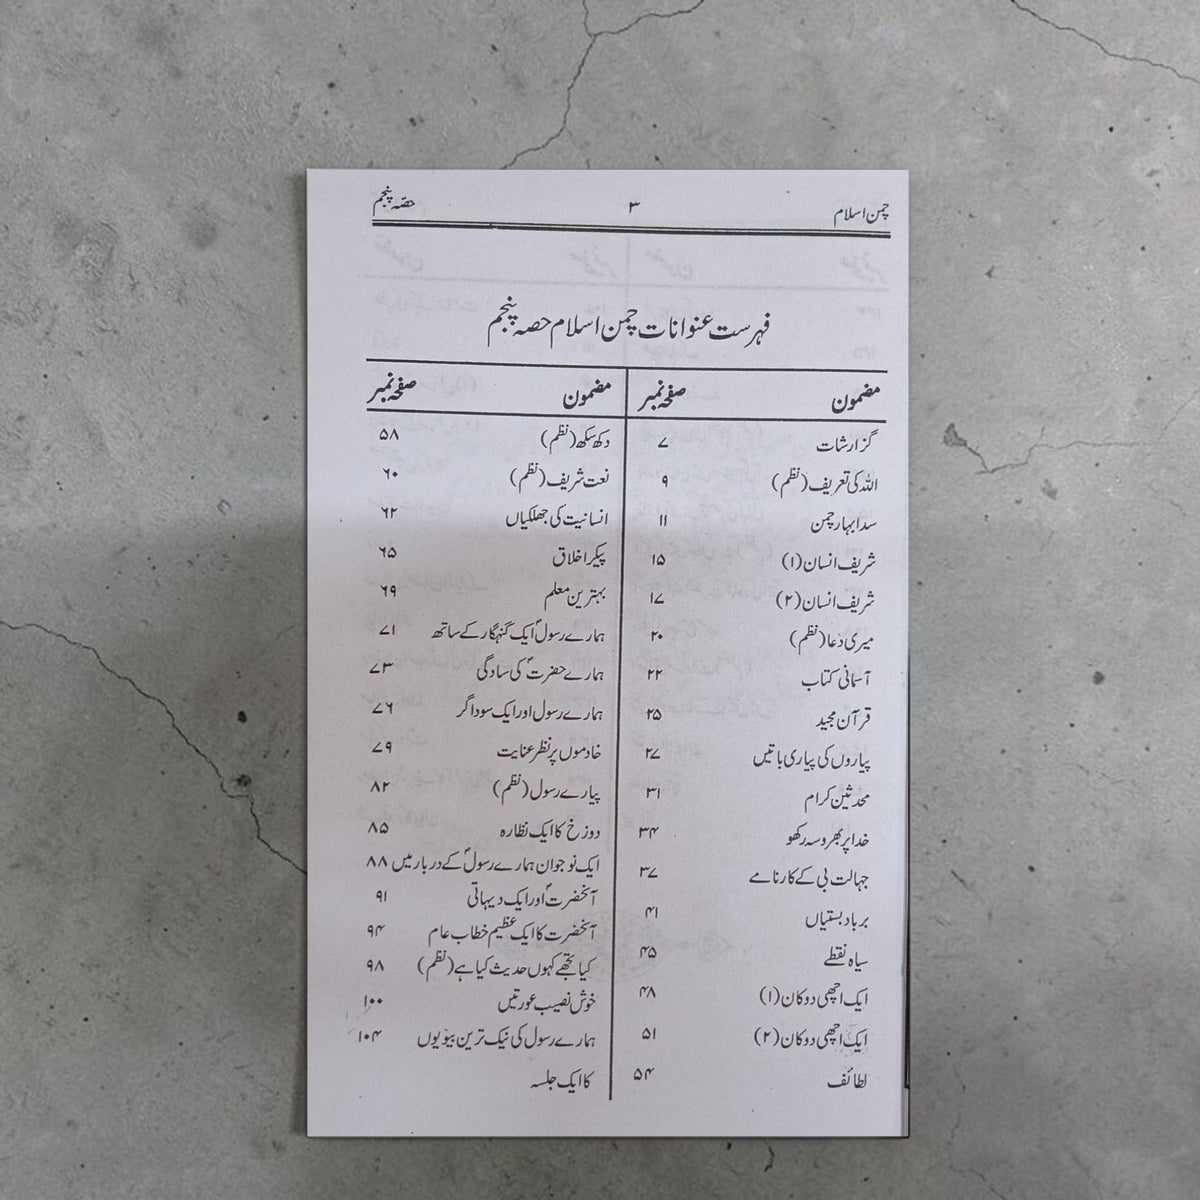 چمن اسلام ۳ حصّہ پنجم
فہرست عنوانات چمن اسلام حصہ پنجم
مضمون صفحہ نمبر
گزارشات ۷
اللہ کی تعریف (نظم) ۹
سدا بہار چمن ۱۱
شریف انسان (۱) ۱۵
شریف انسان (۲) ۱۷
میری دعا (نظم) ۲۰
آسمانی کتاب ۲۲
قرآن مجید ۲۵
پیاروں کی پیاری باتیں ۲۷
محدثین کرام ۳۱
خدا پر بھروسہ رکھو ۳۴
جہالت بی کے کارنامے ۳۷
برباد بستیاں ۴۱
سیاہ نقطے ۴۵
ایک اچھی دوکان (۱) ۴۸
ایک اچھی دوکان (۲) ۵۱
لطائف ۵۴
مضمون صفحہ نمبر
دکھ سکھ (نظم) ۵۸
نعت شریف (نظم) ۶۰
انسانیت کی جھلکیاں ۶۲
پیکر اخلاق ۶۵
بہترین معلم ۶۹
ہمارے رسولؐ ایک گنہگار کے ساتھ ۷۱
ہمارے حضرتؐ کی سادگی ۷۳
ہمارے رسول اور ایک سوداگر ۷۶
خادموں پر نظر عنایت ۷۹
پیارے رسول (نظم) ۸۲
دوزخ کا ایک نظارہ ۸۵
ایک نوجوان ہمارے رسولؐ کے دربار میں ۸۸
آنحضرتؐ اور ایک دیہاتی ۹۱
آنحضرت کا ایک عظیم خطاب عام ۹۴
کیا تجھے کہوں حدیث کیا ہے (نظم) ۹۸
خوش نصیب عورتیں ۱۰۰
ہمارے رسول کی نیک ترین بیویوں ۱۰۴
کا ایک جلسہ